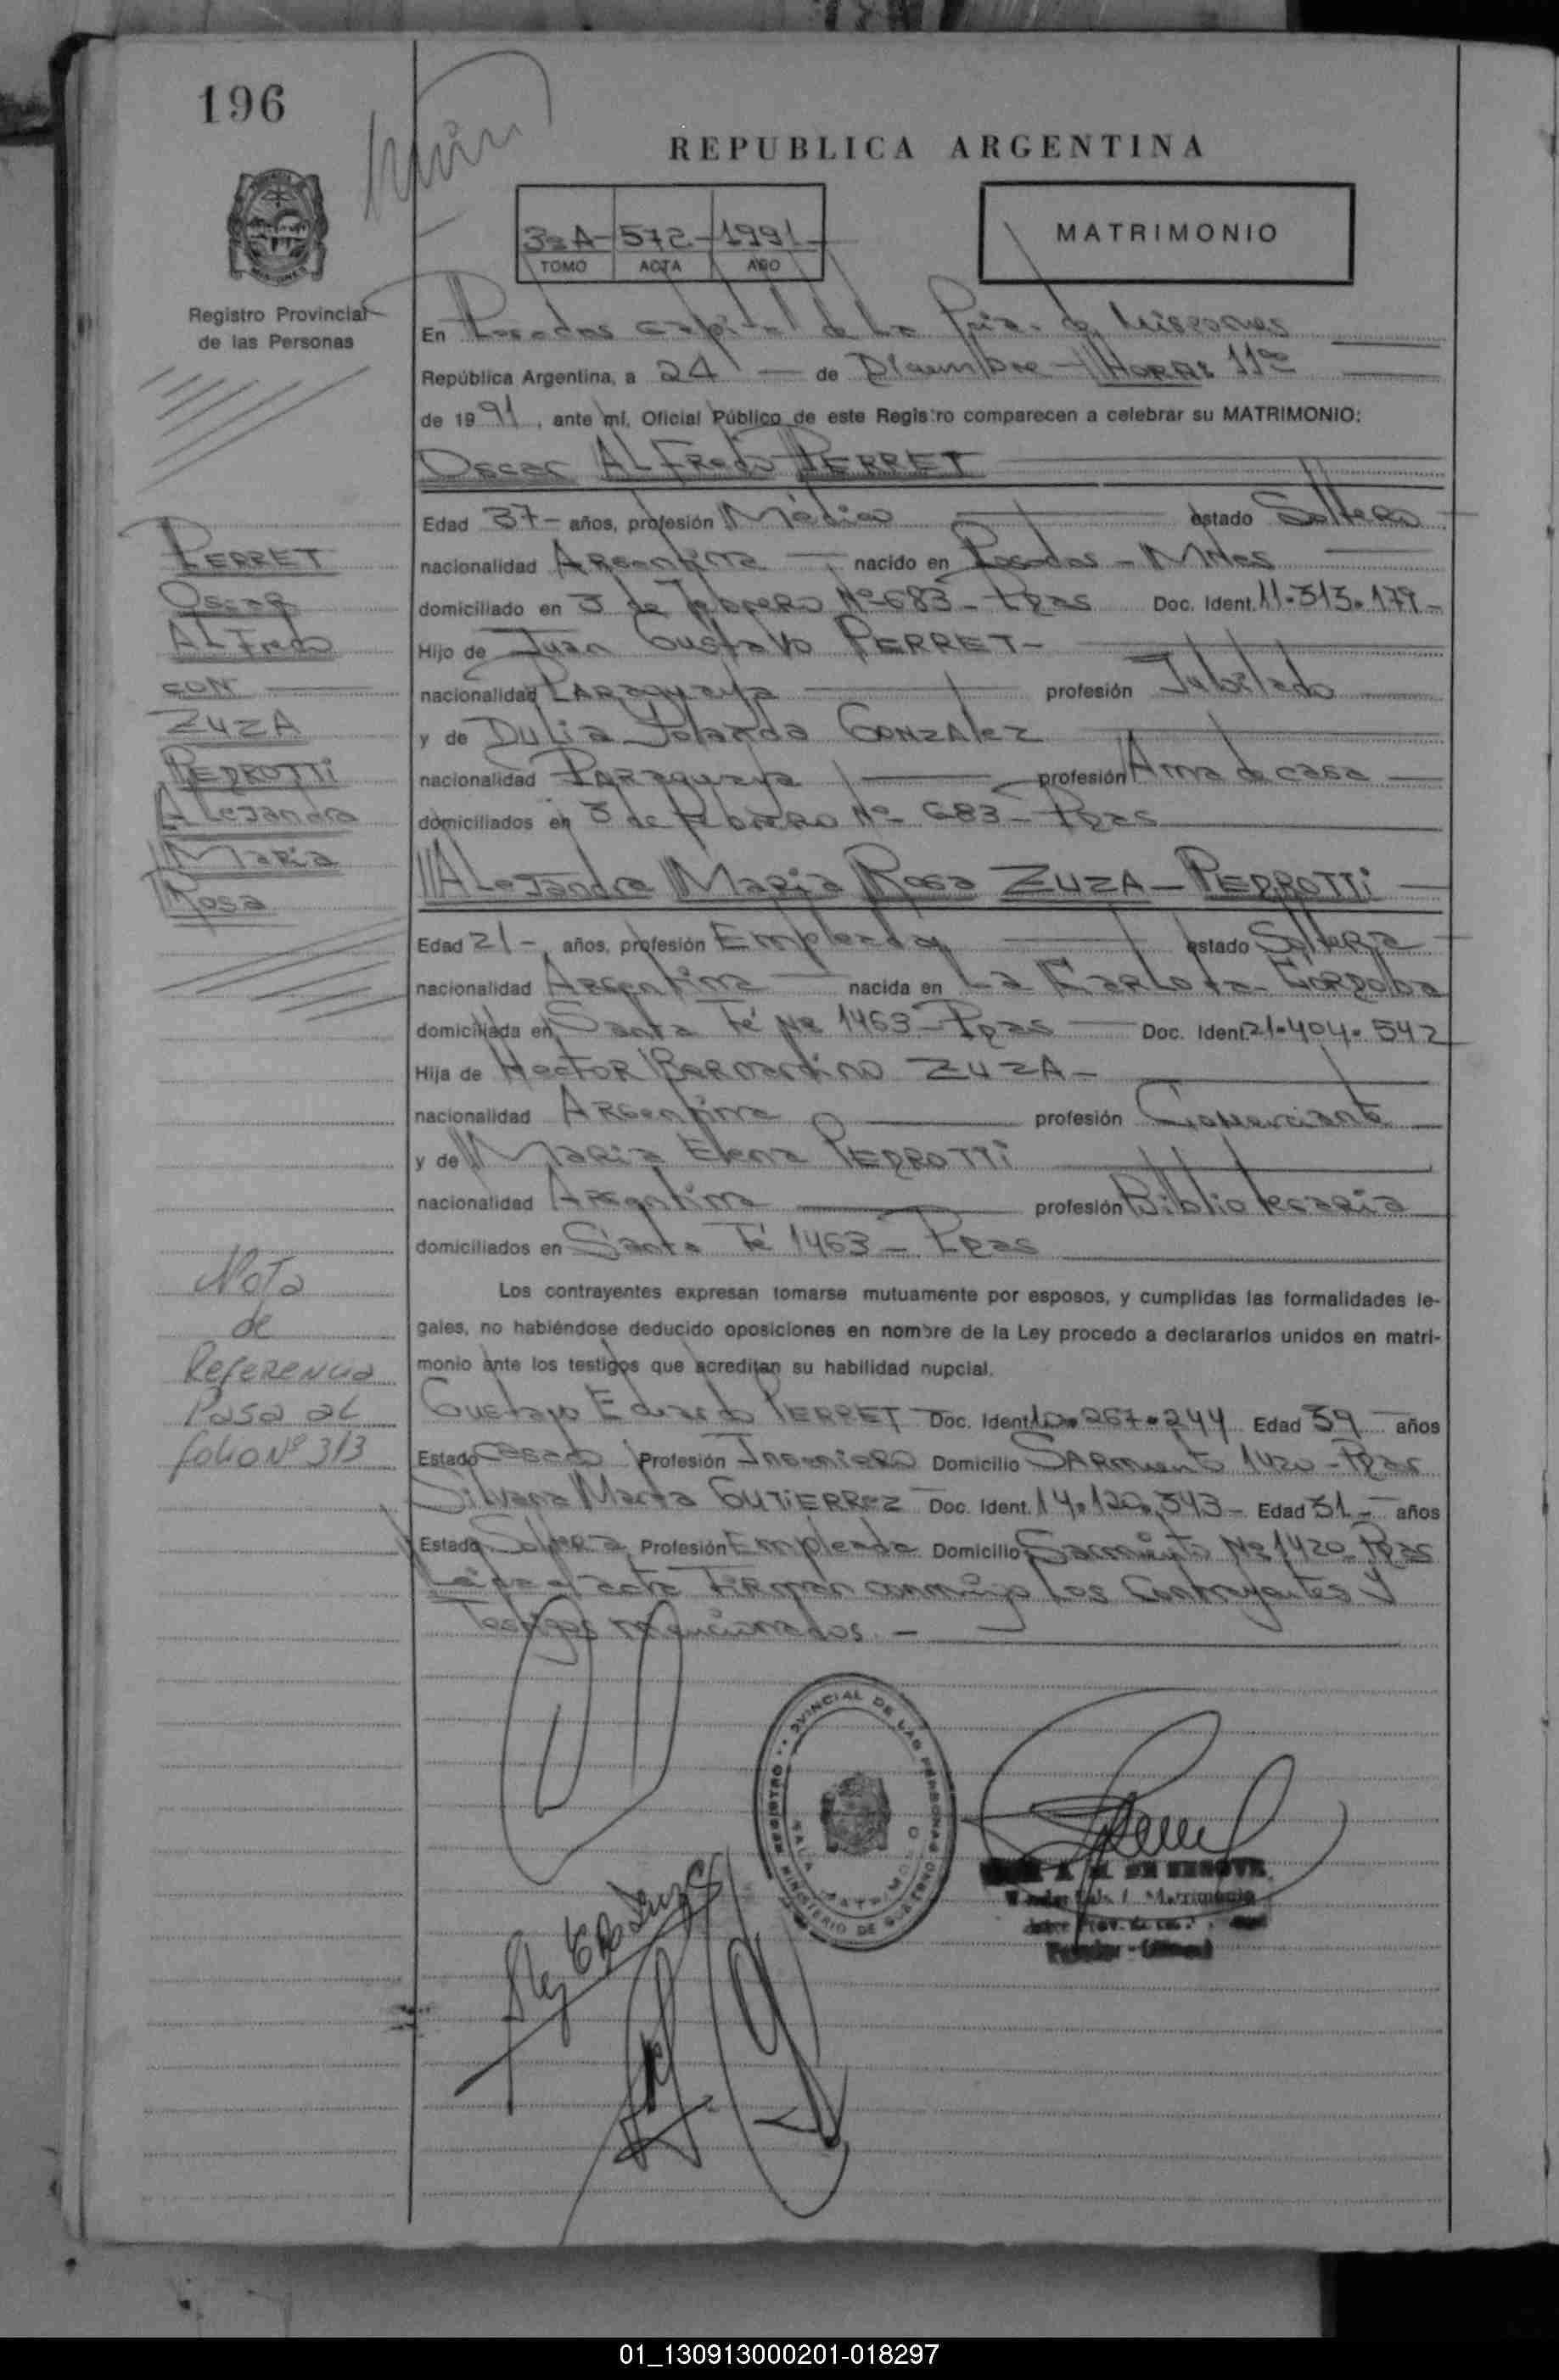 196
REPUBLICA ARGENTINA
MATRIMONIO
3ºA- 572- 1991-
TOMO ACTA AÑO
Registro Provincial
de las Personas
En Posadas Capital de la Pcia. de Misiones
República Argentina, a 24 — de Diciembre - Horas 11
de 1991, ante mí, Oficial Público de este Registro comparecen a celebrar su MATRIMONIO:
Oscar ALFredo PERRET
Edad 37- años, profesión Médico estado Soltero
nacionalidad Argentina nacido en Posadas - Mnes
domiciliado en 3 de Febrero Nº 683- Pdas Doc. Ident. 11.313.179-
Hijo de Juan Gustavo PERRET-
nacionalidad PARAguaya profesión Jubilado
y de Dulia Yolanda GONZALEZ
nacionalidad PARAguaya profesión Ama de casa
domiciliados en 3 de Febrero Nº 683- Pdas
ALejandra Maria Rosa ZUZA - PEDROTTi
Edad 21- años, profesión Empleada estado Soltera
nacionalidad Argentina nacida en La Carlota- Cordoba
domiciliada en Santa Fé Nº 1463- Pdas Doc. Ident. 21.404.542
Hija de HecTOR Bernardino ZUZA-
nacionalidad Argentina profesión Comerciante
y de Maria Elena PEDROTTi
nacionalidad Argentina profesión Bibliotecaria
domiciliados en Santa Fé 1463- Pdas
Los contrayentes expresan tomarse mutuamente por esposos, y cumplidas las formalidades le-
gales, no habiéndose deducido oposiciones en nombre de la Ley procedo a declararlos unidos en matri-
monio ante los testigos que acreditan su habilidad nupcial.
Gustavo Eduardo PERRET- Doc. Ident. 10.267.244 Edad 39 años
Estado Casado Profesión Ingeniero Domicilio SARmiento 1420- Pdas
Silvana Marta GUTiERREZ Doc. Ident. 14.120.343- Edad 31- años
Estado Soltera Profesión Empleada Domicilio Sarmiento Nº 1420- Pdas
Leida el acta Firman conmigo Los Contrayentes y
Testigos mencionados. -
PERRET
Oscar
ALFredo
CON
ZUZA
PEDROTTi
ALejandra
Maria
Rosa
Nota
de
Referencia
Pasa al
folio Nº 313
REGISTRO PROVINCIAL DE LAS PERSONAS
MINISTERIO DE GOBIERNO
SALA MATRIMONIO
01_130913000201-018297